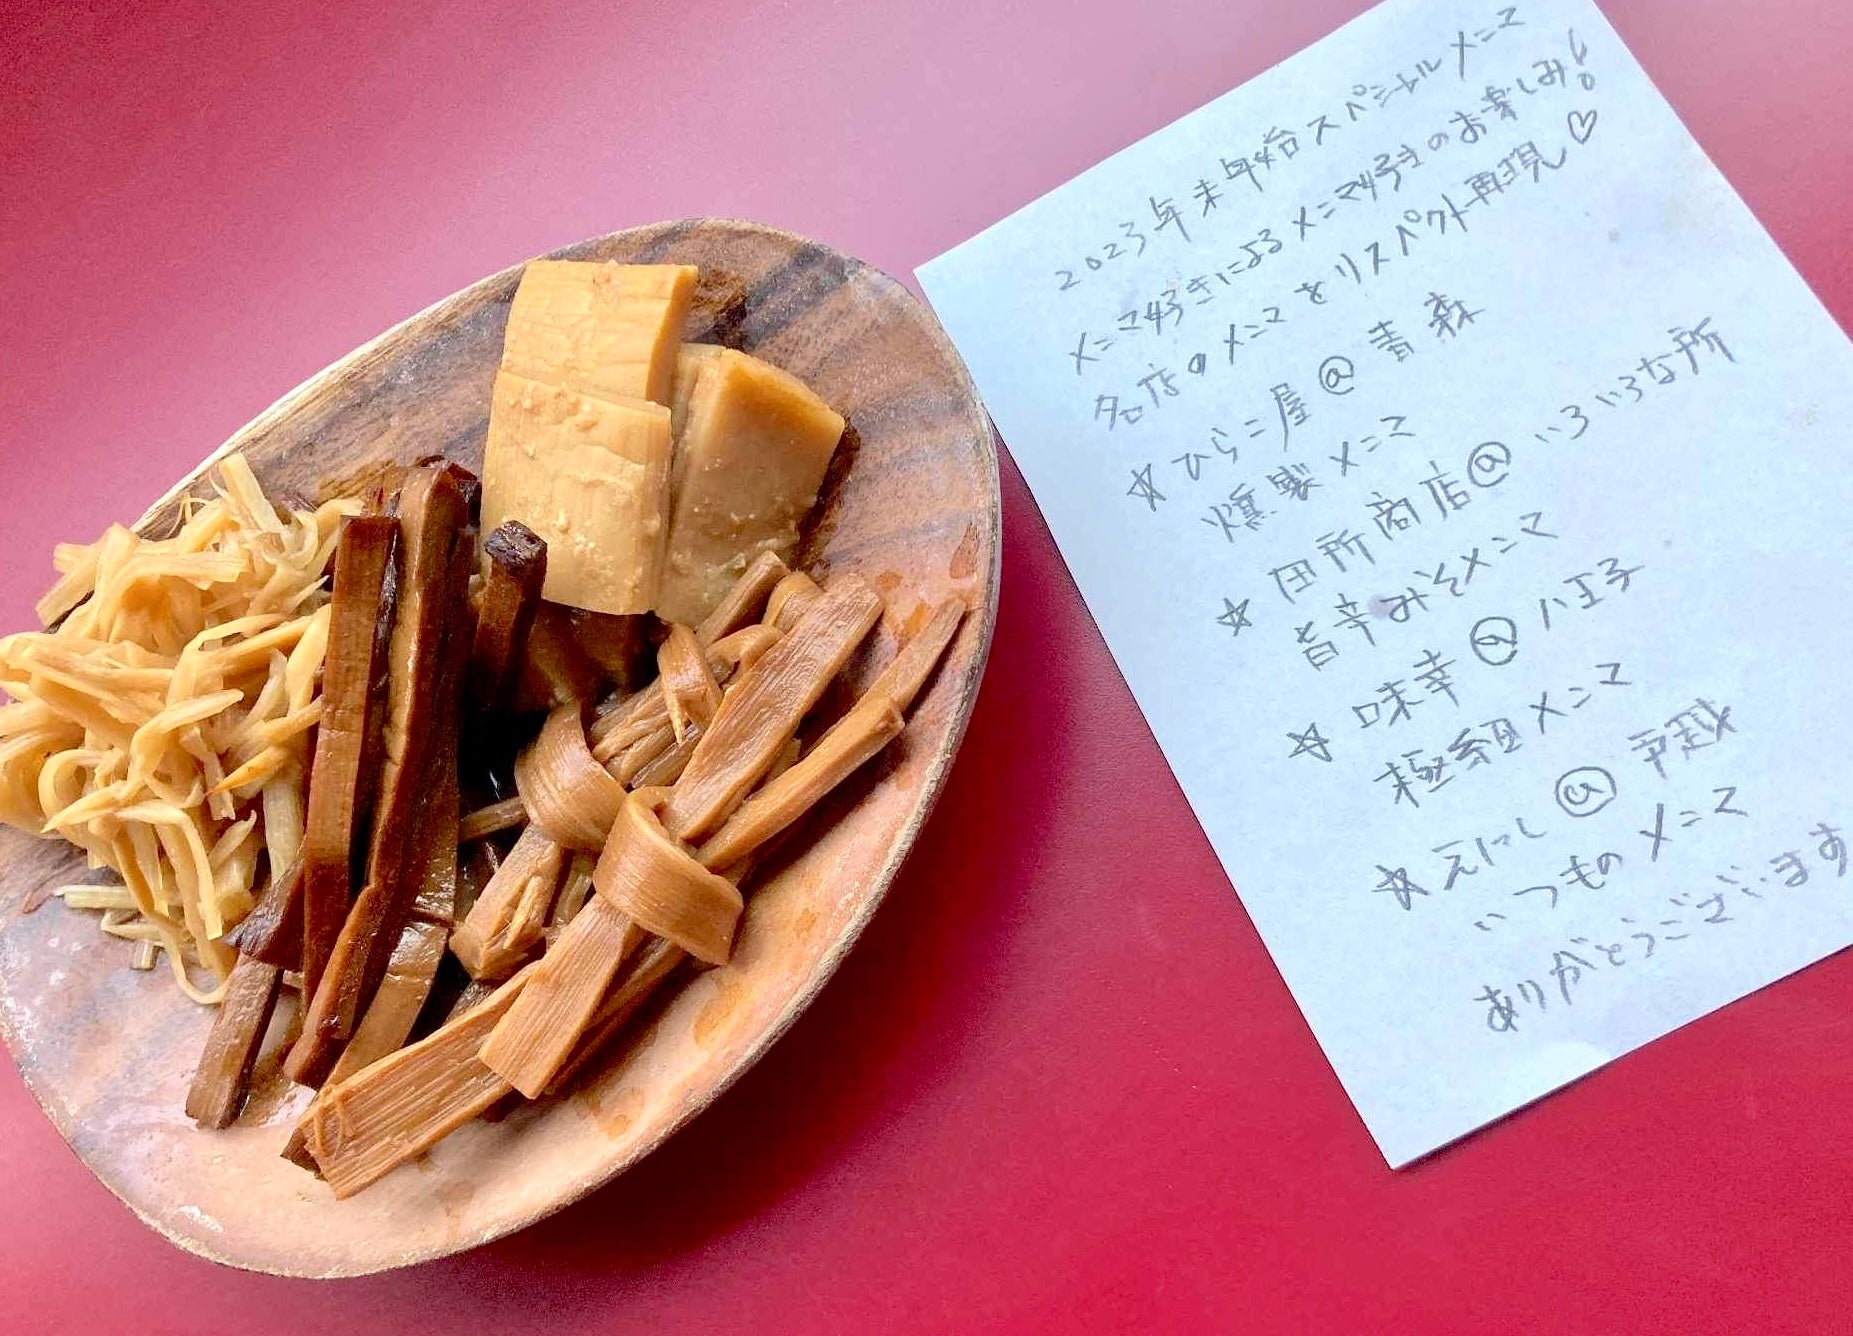 2023年末年始スペシャルメニマ
メニマ好きによるメニマ好きのお楽しみ!
名店のメニマをリスペクト再現♡
☆ひらこ屋@青森
燻製メニマ
☆田所商店@いろいろな所
旨辛みそメニマ
☆味幸@八王子
極細メニマ
☆えにし@戸越
いつものメニマ
ありがとうございます